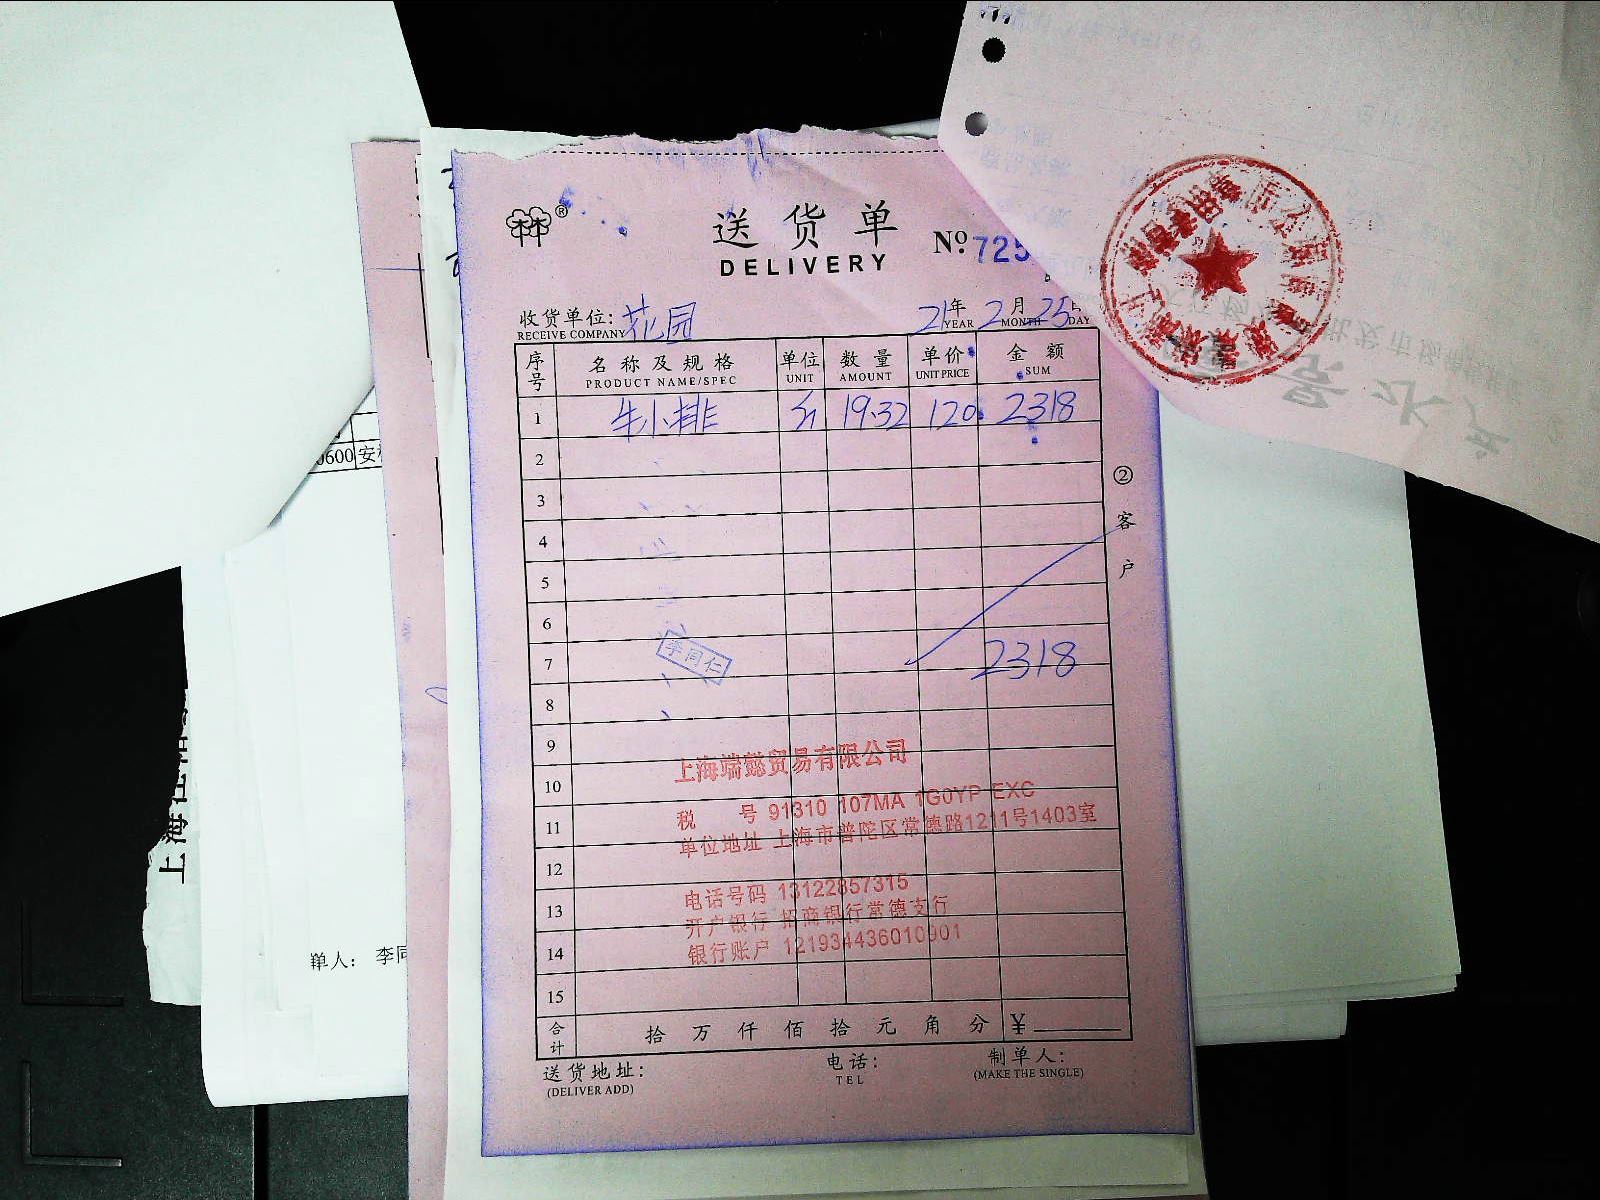 送货单
DELIVERY
Nº 725
收货单位: 花园
RECEIVE COMPANY
21年 2月 25日
YEAR MONTH DAY
序号 名称及规格 单位 数量 单价 金额
PRODUCT NAME/SPEC UNIT AMOUNT UNIT PRICE SUM
1 牛小排 斤 19.32 120 2318
2
3
4
5
6
7 2318
李同仁
8
9
10
11
12
13
14
15
上海端懿贸易有限公司
税 号 91310 107MA 1G0YP EXC
单位地址 上海市普陀区常德路1211号1403室
电话号码 13122857315
开户银行 招商银行常德支行
银行账户 121934436010901
合计 拾 万 仟 佰 拾 元 角 分 ¥
送货地址: 电话: 制单人:
(DELIVER ADD) TEL (MAKE THE SINGLE)
② 客户
0600 安
单人: 李同
上海